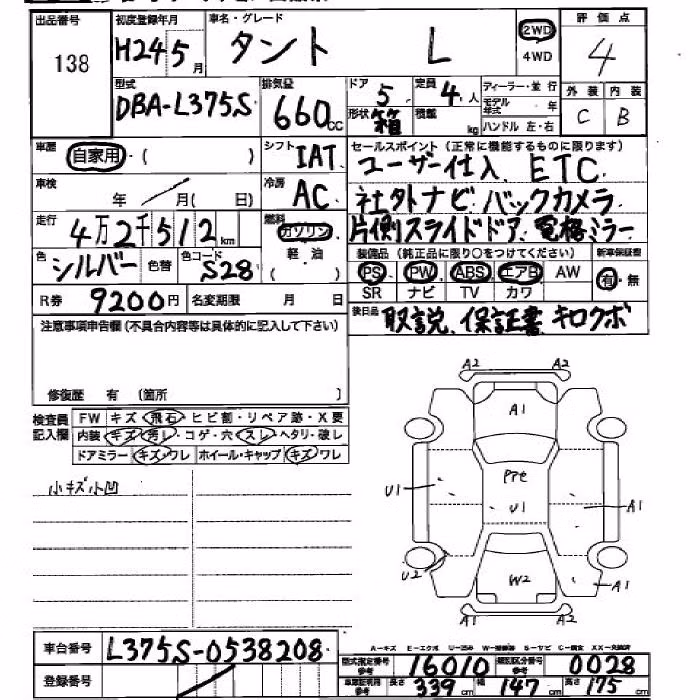 出品番号 初度登録年月 車名・グレード 2WD 評価点
138 H24 5月 タント L 4WD 4
型式 排気量 ドア 定員 ディーラー・並行 外装 内装
DBA-L375S 660cc 5 4人 モデル年式 年 C B
形状 箱 積載 kg ハンドル 左・右
車歴 自家用・( ) シフト IAT セールスポイント(正常に機能するものに限ります)
ユーザー仕入 ETC
車検 年 月( 日) 冷房 AC 社外ナビ バックカメラ
走行 4万2千512km 燃料 ガソリン 片側スライドドア、電格ミラー
軽・油
色 シルバー 色替 色コード S28 ( )
装備品(純正品に限り○をつけてください) 新車保証書
PS PW ABS エアB AW 有・無
SR ナビ TV カワ
R券 9200円 名変期限 月 日 後日品 取説、保証書 キロクボ
注意事項申告欄(不具合内容等は具体的に記入して下さい)
修復歴 有 〔箇所 〕
検査員記入欄 FW キズ・飛石・ヒビ割・リペア跡・X要
内装 キズ・汚レ・コゲ・穴・スレ・ヘタリ・破レ
ドアミラー キズ・ワレ ホイール・キャップ キズ・ワレ
小キズ小凹
A2 A2
A1
Pte
U1 U1 A1
U2 W2 A1
A1 A1
車台番号 L375S-0538208
登録番号
A-キズ E-エクボ U-凹み
型式指定番号 参考 16010 類別区分番号 参考 0028
参考 長さ 339cm 幅 147cm 高さ 175cm